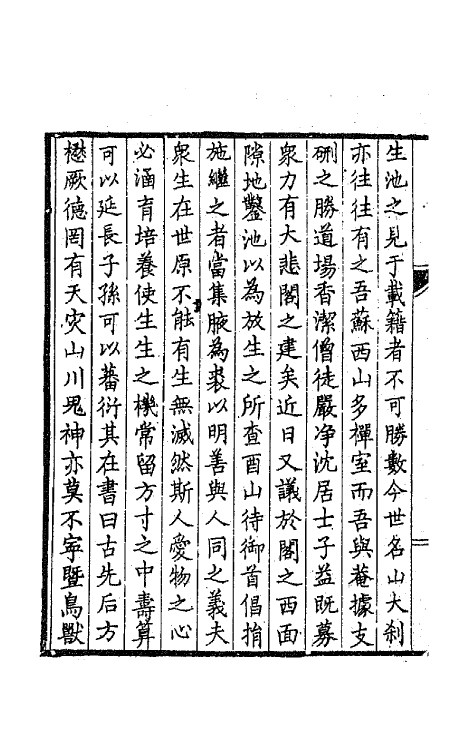 生池之見于載籍者不可勝數今世名山大刹
亦往往有之吾蘇西山多禪室而吾與菴據支
硎之勝道場香潔僧徒嚴净沈居士子益既募
衆力有大悲閣之建矣近日又議於閣之西面
隙地鑿池以為放生之所查酉山待御首倡捐
施繼之者當集腋為裘以明善與人同之義夫
衆生在世原不能有生無滅然斯人愛物之心
必涵育培養使生生之機常留方寸之中壽算
可以延長子孫可以蕃衍其在書曰古先后方
懋厥德罔有天灾山川鬼神亦莫不寧暨鳥獸